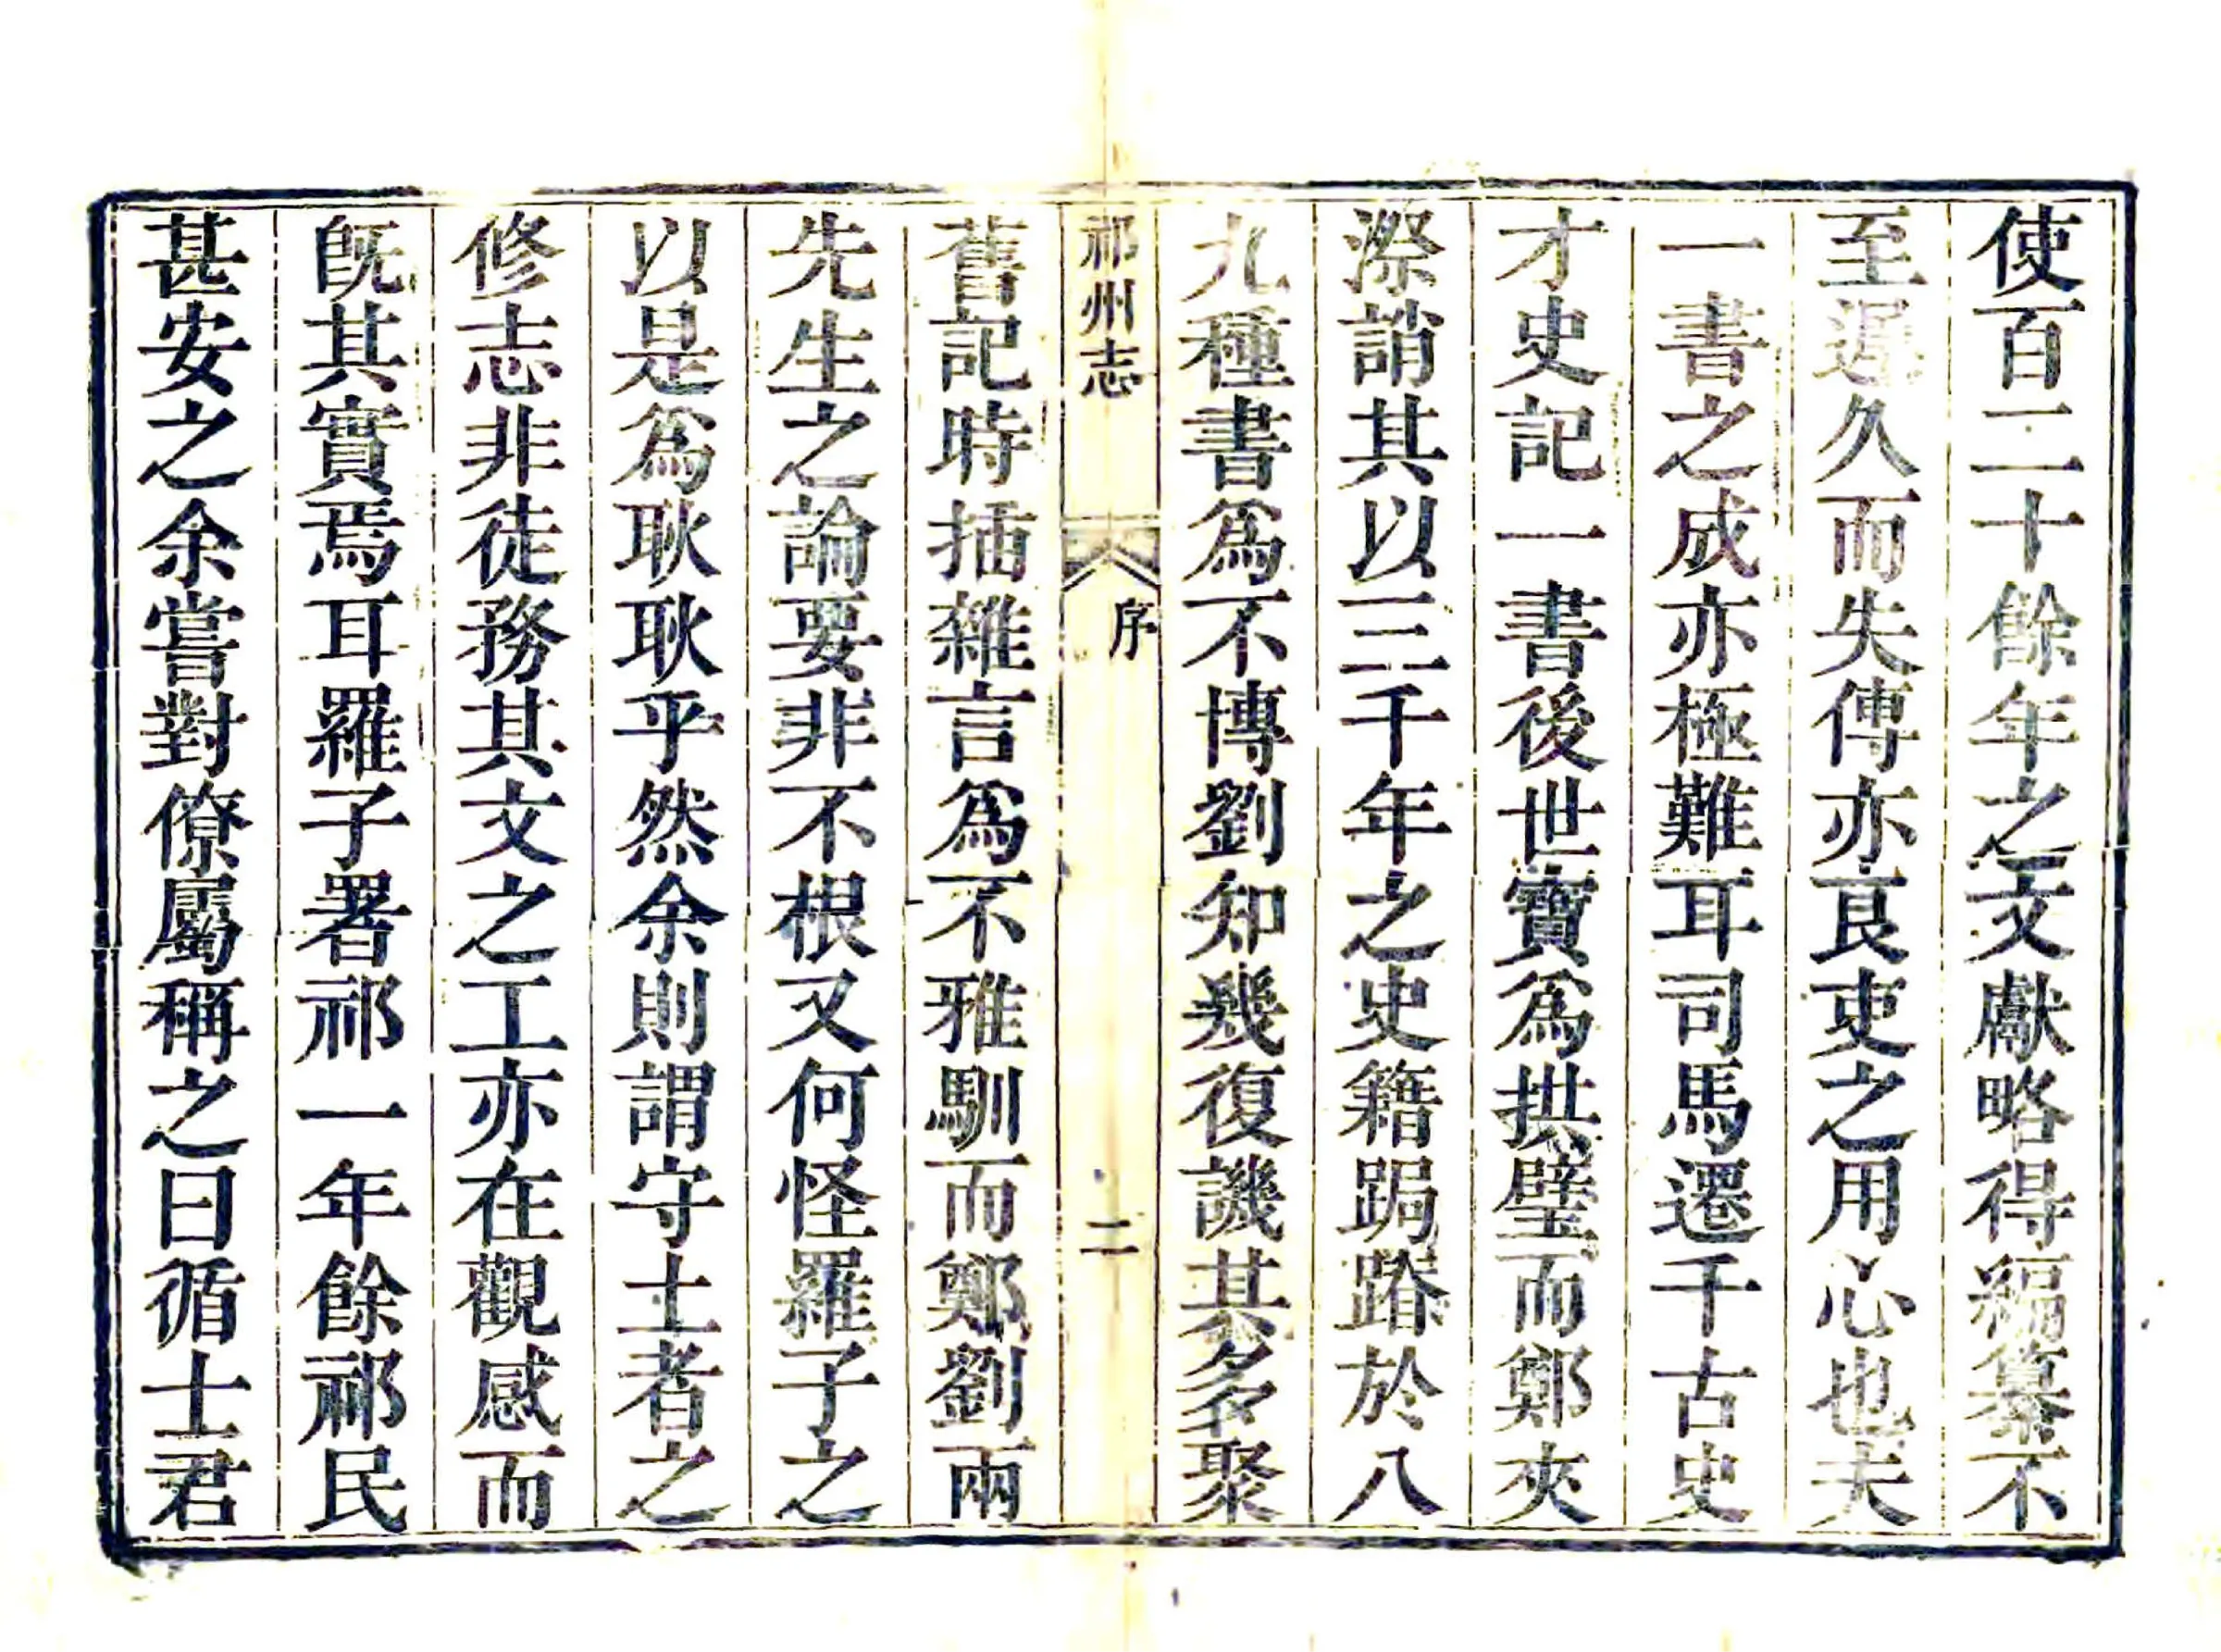 使百二十餘年之文獻略得編纂不
至遲久而失傳亦良吏之用心也夫
一書之成亦極難耳司馬遷千古史
才史記一書後世寶爲拱璧而鄭夾
漈誚其以三千年之史籍跼蹐於八
九種書爲不博劉知幾復譏其多聚
祁州志
序
二
舊記時插雜言爲不雅馴而鄭劉兩
先生之論要非不根又何怪羅子之
以是爲耿耿乎然余則謂守土者之
修志非徒務其文之工亦在觀感而
旣其實焉耳羅子署祁一年餘祁民
甚安之余嘗對僚屬稱之曰循士君